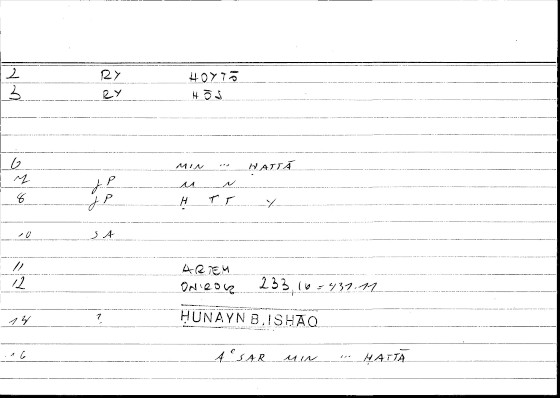 2 RY HOYTŌ
3 RY HŌS
6 MIN ... ḤATTĀ
7 JP M N
8 JP Ḥ T T Y
10 SA
11 ARTEM
12 ONIROCR 233,16 = 431.11
14 ? ḤUNAYN B. ISḤĀQ
16 A°SAR MIN ... ḤATTĀ